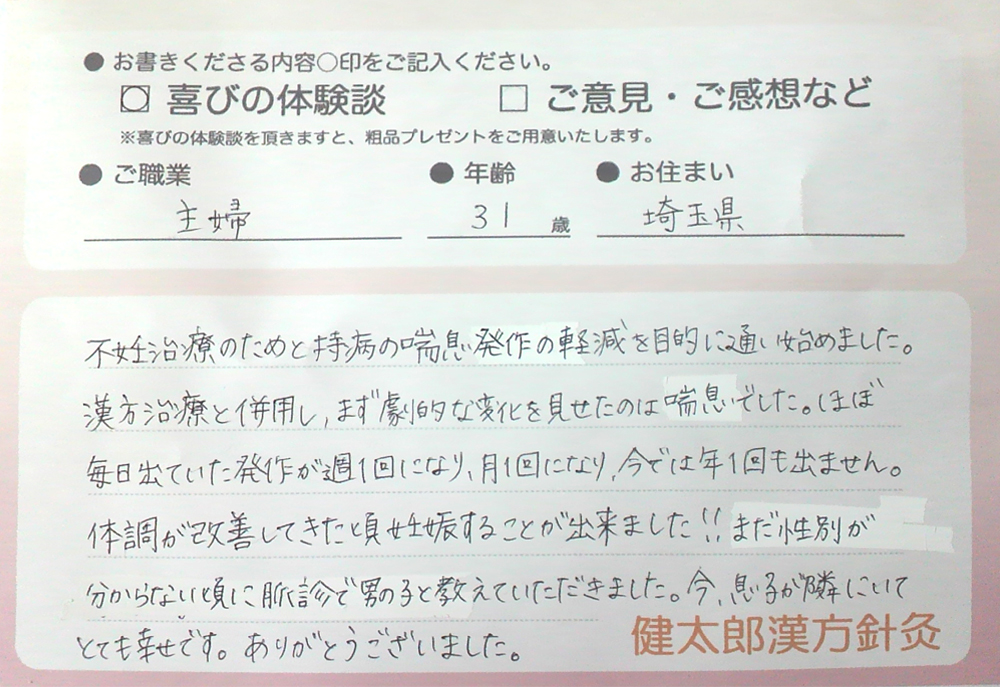 ● お書きくださる内容○印をご記入ください。
☑ 喜びの体験談 □ ご意見・ご感想など
※喜びの体験談を頂きますと、粗品プレゼントをご用意いたします。
● ご職業 ● 年齢 ● お住まい
主婦 31 歳 埼玉県
不妊治療のためと持病の喘息発作の軽減を目的に通い始めました。
漢方治療と併用し、まず劇的な変化を見せたのは喘息でした。ほぼ
毎日出ていた発作が週1回になり、月1回になり、今では年1回も出ません。
体調が改善してきた頃妊娠することが出来ました!!まだ性別が
分からない頃に脈診で男の子と教えていただきました。今、息子が隣にいて
とても幸せです。ありがとうございました。
健太郎漢方針灸